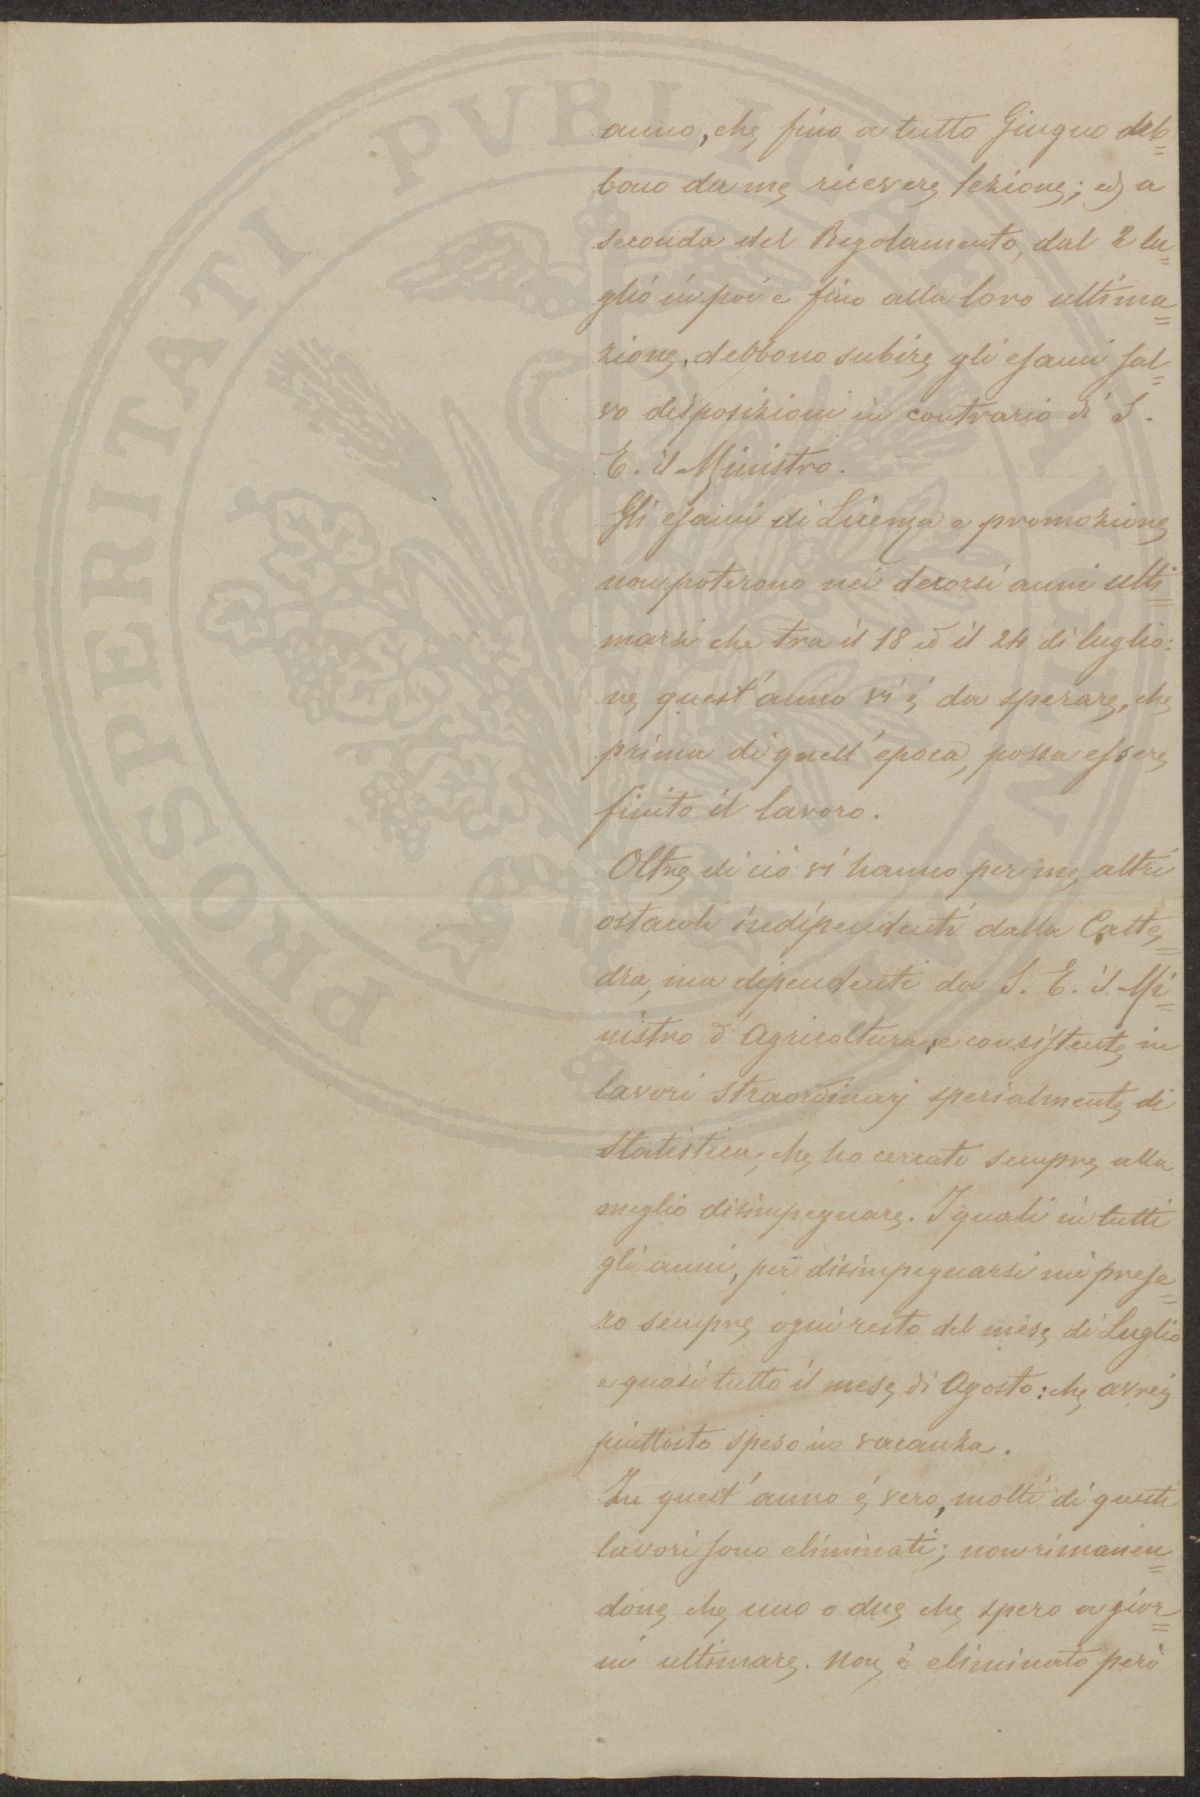 PROSPERITATI PVBLICAE AVGENDAE
anno, che fino a tutto Giugno deb=
bono da me ricevere lezione; ed a
seconda del Regolamento, dal 2 lu=
glio in poi e fino alla loro ultima=
zione, debbono subire gli esami sal=
vo disposizioni in contrario di S.
E. il Ministro.
Gli esami di Licenza e promozione
non poterono nei decorsi anni ulti=
marsi che tra il 18 ed il 24 di luglio:
ne quest'anno vi è da sperare, che
prima di quell'epoca, possa essere
finito il lavoro.
Oltre di ciò vi hanno per me altri
ostacoli indipendenti dalla Catte=
dra, ma dipendenti da S. E. il Mi=
nistro d'Agricoltura; e consistente in
lavori straordinarj specialmente di
Statistica, che ho cercato sempre alla
meglio disimpegnare. I quali in tutti
gli anni, per disimpegnarsi mi prese=
ro sempre ogni resto del mese di Luglio
e quasi tutto il mese di Agosto: che avrei
piuttosto speso in vacanza.
In quest'anno è vero, molti di questi
lavori sono eliminati; non rimanen=
done che uno o due che spero a gior=
ni ultimare. Non è eliminato però